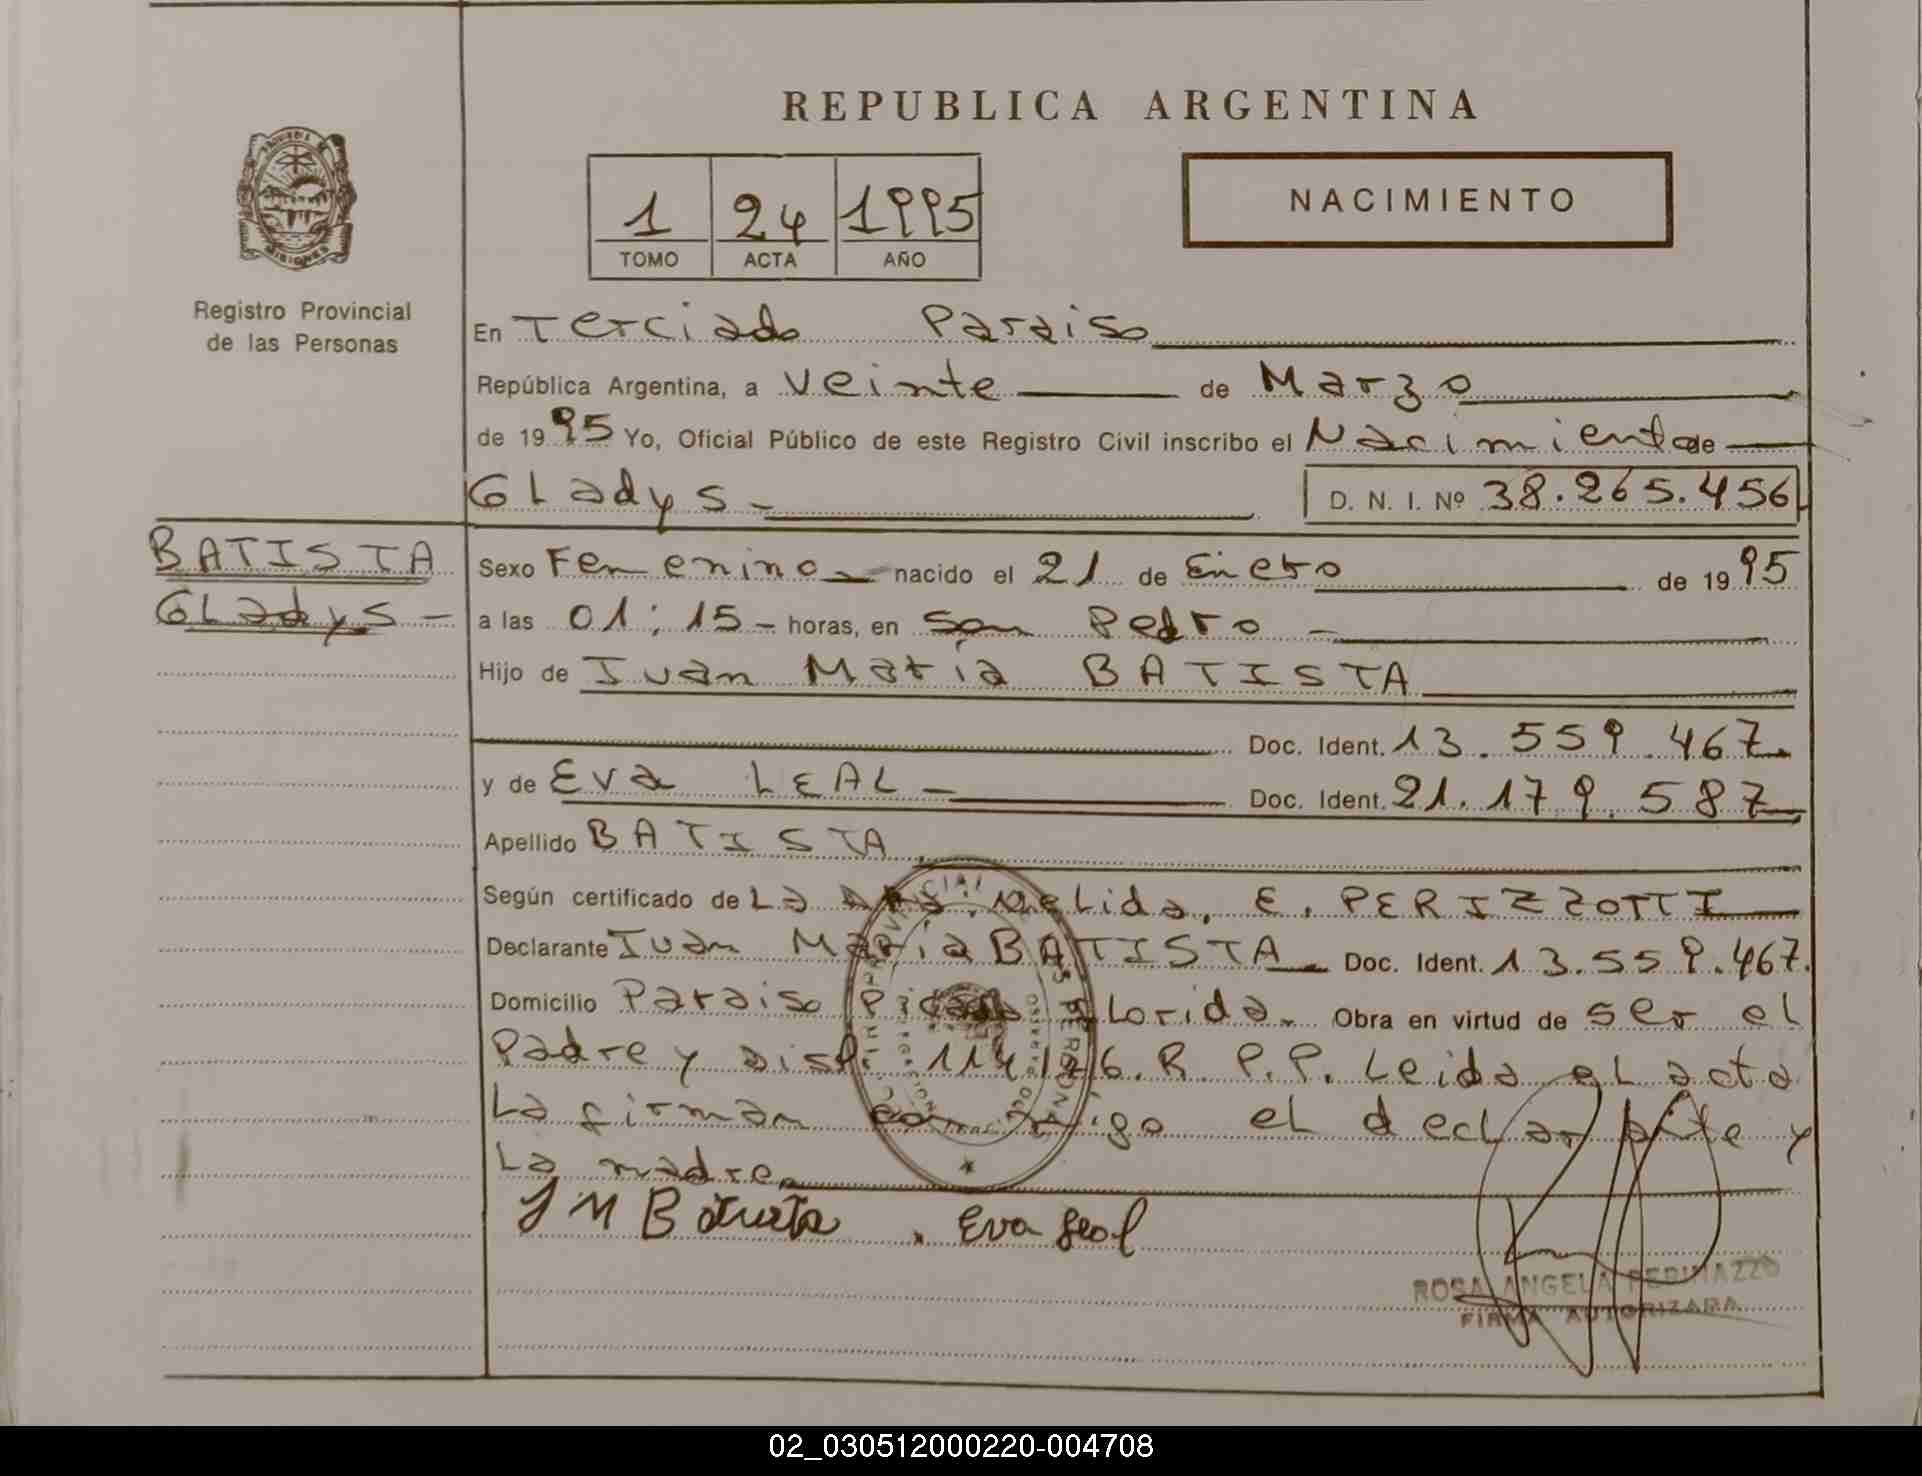 REPUBLICA ARGENTINA
NACIMIENTO
1 24 1995
TOMO ACTA AÑO
Registro Provincial
de las Personas
En Terciado Paraiso
República Argentina, a veinte de Marzo
de 1995 Yo, Oficial Público de este Registro Civil inscribo el Nacimiento de
GLadys D. N. I. Nº 38.265.456
BATISTA
GLadys
Sexo Femenino nacido el 21 de Enero de 1995
a las 01:15 horas, en San Pedro
Hijo de Juan Maria BATISTA
Doc. Ident. 13.559.467
y de Eva LEAL Doc. Ident. 21.179.587
Apellido BATISTA
Según certificado de La Nelida. E. PERIZZOTTI
Declarante Juan Maria BATISTA Doc. Ident. 13.559.467.
Domicilio Paraiso Picada Florida. Obra en virtud de ser el
Padre y Disp. R. P.P. Leida el acta
La firman conmigo el declarante y
La madre.
J M Batista Eva Leal
ROSA ANGELA
FIRMA AUTORIZADA
02_030512000220-004708